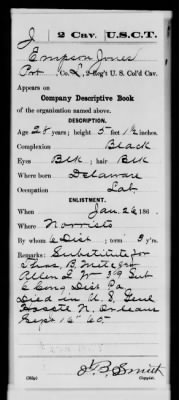 J | 2 Cav. | U.S.C.T.
Empson Jones
Pvt, Co. L, 2 Reg't U. S. Col'd Cav.
Appears on
Company Descriptive Book
of the organization named above.
DESCRIPTION.
Age 28 years; height 5 feet 1½ inches.
Complexion Black
Eyes Blk; hair Blk
Where born Delaware
Occupation Lab.
ENLISTMENT.
When Jan. 26, 186 .
Where Norristo
By whom 6 Dist; term 3 y'rs.
Remarks: Substitute for
Thos. B. Metzger
Allen L W 369 Sub
6 Cong Dis Pa
Died in U. S. Genl
N. Orleans
Sept 16" 65.
Smith
Copyist.